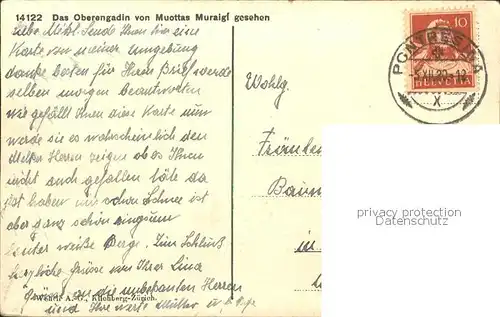 14122 Das Oberengadin von Muottas Muraigl gesehen
Liebe Mitzl. Sende Ihnen hier eine
Karte von meiner Umgebung
danke besten für Ihren Brief werde
selben morgen beantworten
wie gefällt Ihnen diese Karte nun
werde sie es wahrscheinlich den
Herren zeigen ob es Ihnen
nicht auch gefallen täte da
haben wir schon Schnee ist
aber ganz schön ringsum
weiße Berge. Zum Schluß
herzliche Grüße von Ihrer Lina
Grüße an die unbekannten Herren
und Ihre werte Mutter u.
A. G., Kilchberg-Zürich.
10
HELVETIA
PONTRESINA
X
Wohlg.
Fräulein
in
privacy protection
watermark